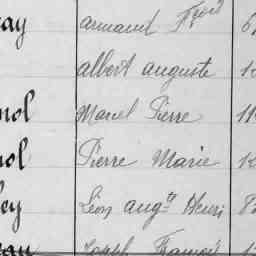 ay armand Fréd
albert auguste
nol Marcel Pierre 11
nol Pierre Marie
ey Léon augte Henri
eau Joseph François